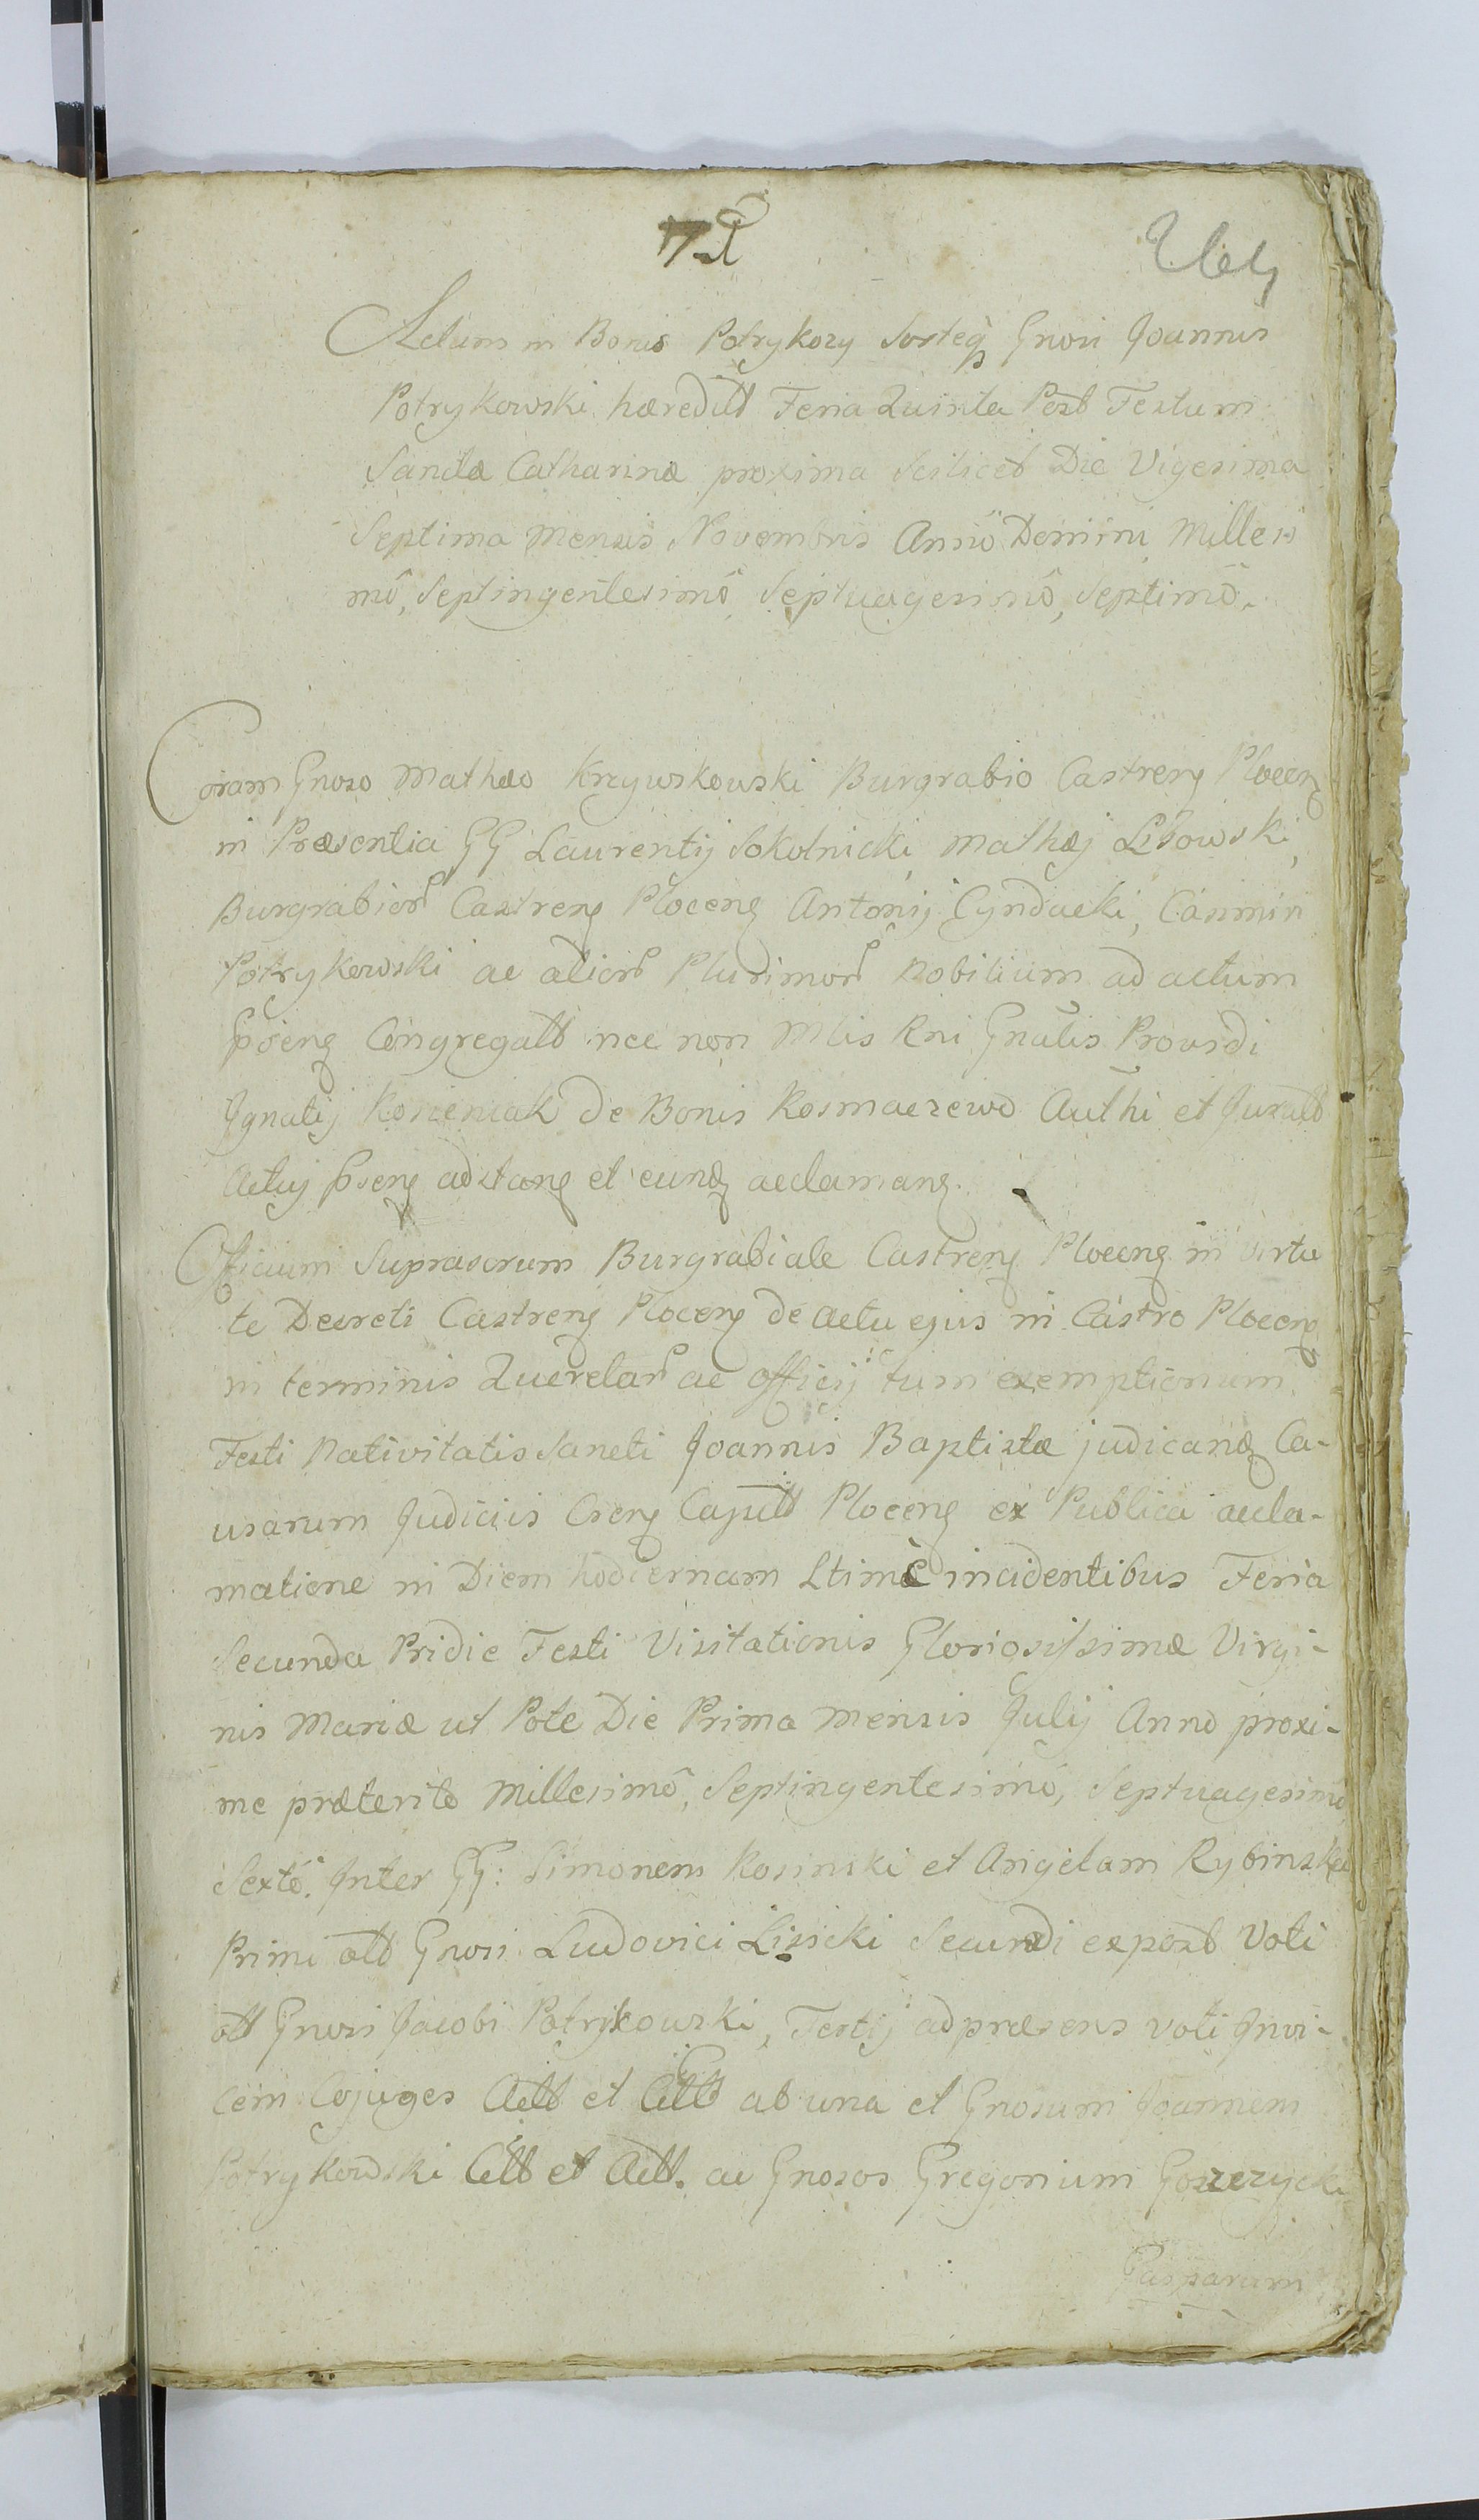 Actum in Bonis Potrykozy Sorteq Gnosi Joannis
Potrykowski hæreditt Feria Quinta Post Festum
Sanctæ Catharinæ proxima Scilicet Die Vigesima
Septima Mensis Novembris Annô Domini Millesi
mô, Septingentesimô, Septuagesimô, Septimô.
Coram Gnoso Mathæo Krzywkowski Burgrabio Castreng Ploceng
in Præsentia GG Laurentij Sokolnicki, Mathæj Lisowski,
Burgrabior Castreng Ploceng Antonij Cyndacki, Casimiri
Potrykowski ac alior Plurimor Nobilium ad actum
pseng Congregatt nec non Mlis Rni Gnalis Providi
Ignatij Kosieniak de Bonis Kosmaczewo Authi et Juratt
Actuj pseng adstang et eund acclamang.
Officium Suprascrum Burgrabiale Castreng Ploceng in virtu
te Decreti Castreng Ploceng de Actu ejus in Castro Ploceng
in terminis Querelar ac officij tum exemptionum
Festi Nativitatis Sancti Joannis Baptistæ judicand Ca-
usarum Judiciis Cseng Capitt Ploceng ex Publica accla-
matione in Diem hodiernam Ltimè incidentibus Feria
Secunda Pridie Festi Visitationis Gloriosissimæ Virgi-
nis Mariæ ut Pote Die Prima Mensis Julij Annô proxi-
me præterito Millesimô, Septingentesimô, Septuagesimô
Sextô. Inter GG: Simonem Kosinski et Angelam Rybinska
Primi olt Gnosi Ludovici Lisicki Secundi expost Voti
olt Gnosi Jacobi Potrykowski, Tertij ad præsens voti Invi-
cem Cojuges Actt et Citt ab una et Gnosum Joannem
Potrykowski Citt et Actt. ac Gnosos Gregorium Goszczycki
Gasparum